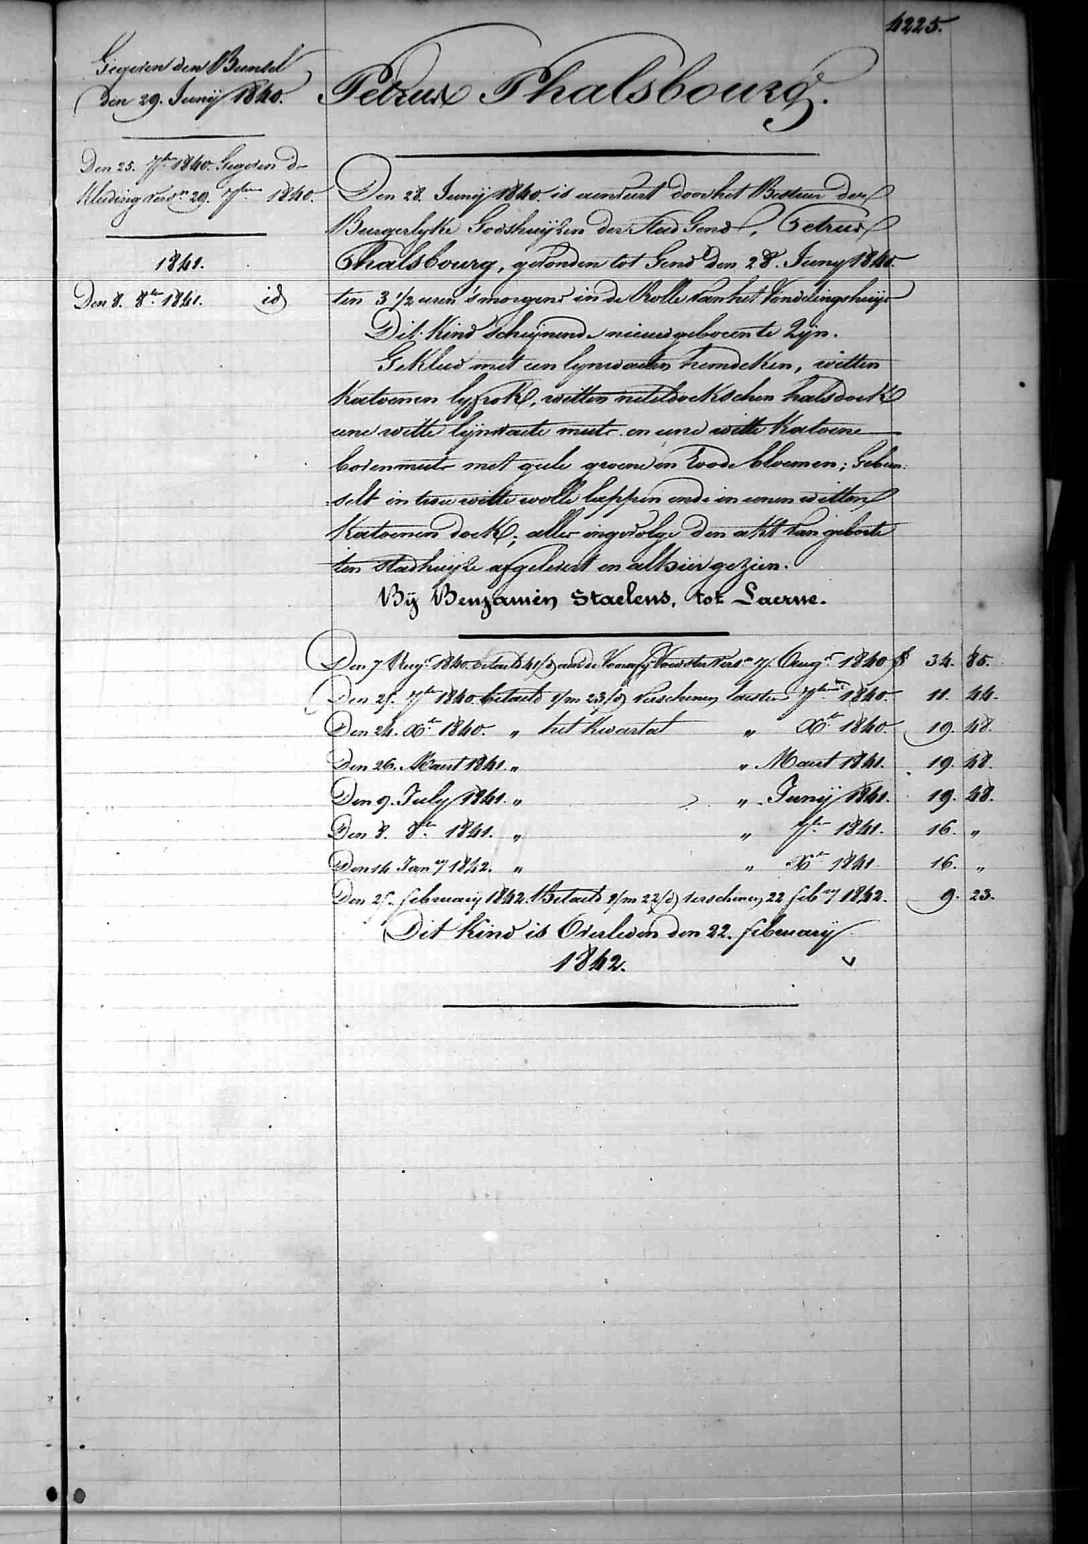 4225.
Gegeven den Bunsel
Den 29. Junij 1840.
Petrus Phalsbourg.
Den 25. 7br 1840. Gegeven d
kleding vers.n 29. 7ber 1840.
1841.
Den 8. 8br 1841. id
Den 28. Junij 1840. is aenveert door het Bestuer der
Burgerlyke Godshuijzen der Stad Gend, Petrus
Phalsbourg, gevonden tot Gend den 28. Juny 1840.
ten 3 1/2 uren 'smorgens in de Rolle van het Vondelingshuijs
Dit kind scheijnende nieuwgeboren te Zyn.
Gekleed met een lynwaeten hemdeken, witten
katoenen lyfrok, witten neteldoekschen halsdoek
eene witte lijnwaete muts en eene witte katoene
bovenmuts met geele groene en Roode bloemen; Gebun-
selt in twee witte wolle lappen ende in eenen witten
katoenen doek; alles ingevolge den akt van geboorte
ten Stadhuijze afgelevert en alhier gezien.
Bÿ Benjamin Staelens, tot Laerne.
Den 7 Aug.t 1840. betaeld 41/d aen de Voorafg Voedster Vers.n 7 Aug.t 1840 f 34. 85.
Den 25. 7br 1840. betaeld 1/m 23/d Verschenen laesten 7ber 1840. 11. 44.
Den 24. Xbr 1840. „ het Kwartal „ Xbr 1840. 19. 48.
Den 26. Maert 1841. „ „ Maert 1841. 19. 48.
Den 9. July 1841. „ „ Junij 1841. 19. 48.
Den 8. 8br 1841. „ „ 7br 1841. 16. „
Den 14 Jan.y 1842. „ „ Xbr 1841 16. „
Den 25 februarij 1842. Betaeld 1/m 22/d verschenen 22 feb.ry 1842. 9. 23.
Dit kind is Overleden den 22. februarij
1842.